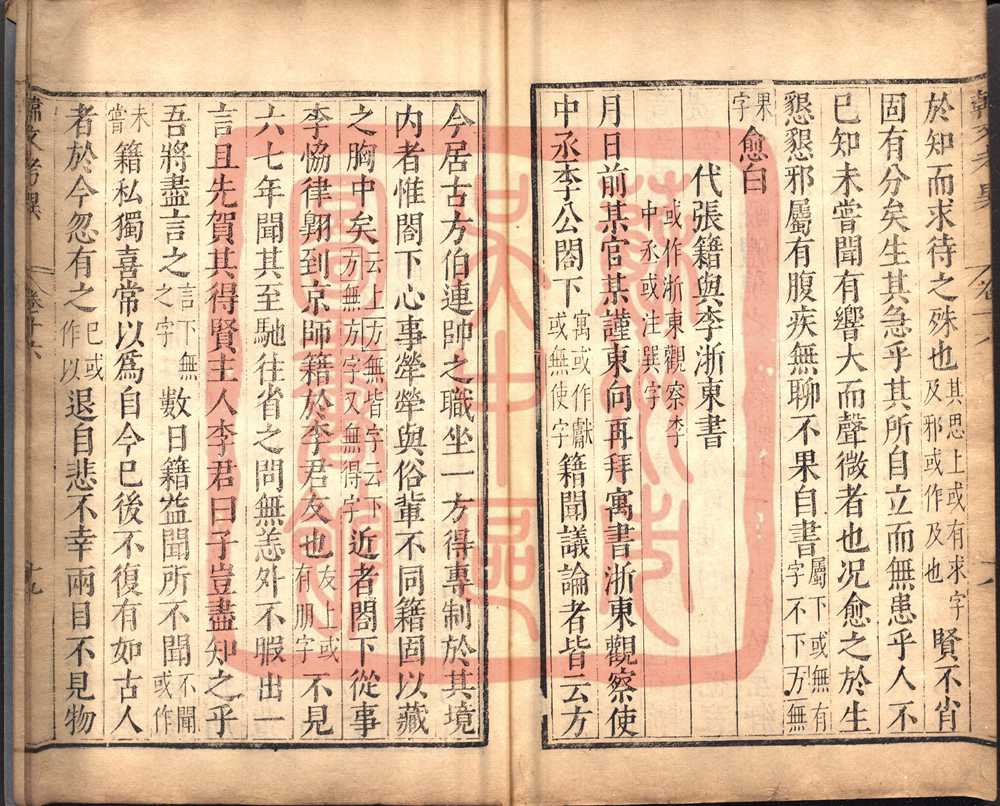 韓文考異
於知而求待之殊也其思上或有求字及邪或作及也賢不肖
固有分矣生其急乎其所自立而無患乎人不
已知未嘗聞有響大而聲微者也况愈之於生
懇懇邪屬有腹疾無聊不果自書屬下或無有字不下方無
果字愈白
代張籍與李浙東書
或作浙東觀察李中丞或注巽字
月日前某官某謹東向再拜寓書浙東觀察使
中丞李公閤下寓或作獻或無使字籍聞議論者皆云方
今居古方伯連帥之職坐一方得專制於其境
内者惟閤下心事犖犖與俗輩不同籍固以藏
之胸中矣云上方無皆字云下方無方字又無得字近者閤下從事
李協律翺到京師籍於李君友也友上或有朋字不見
六七年聞其至馳往省之問無恙外不暇出一
言且先賀其得賢主人李君曰子豈盡知之乎
吾將盡言之言下無之字數日籍益聞所不聞不聞或作
未嘗籍私獨喜常以爲自今巳後不復有如古人
者於今忽有之巳或作以退自悲不幸兩目不見物
韓文考異 卷十六 十九
蘇州市
吳中區
圖書館